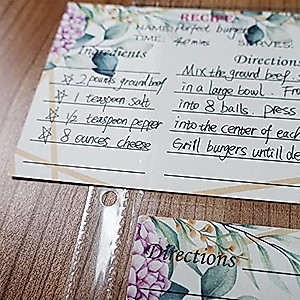 RECIPE
NAME: Perfect burgers
TIME: 40 mins SERVES:
Ingredients
☆ 2 pounds ground beef
☆ 1 teaspoon salt
☆ 1/2 teaspoon pepper
☆ 8 ounces cheese
Directions
Mix the ground beef
in a large bowl. Fro
into 8 balls. press
into the center of each
Grill burgers until de
Directions